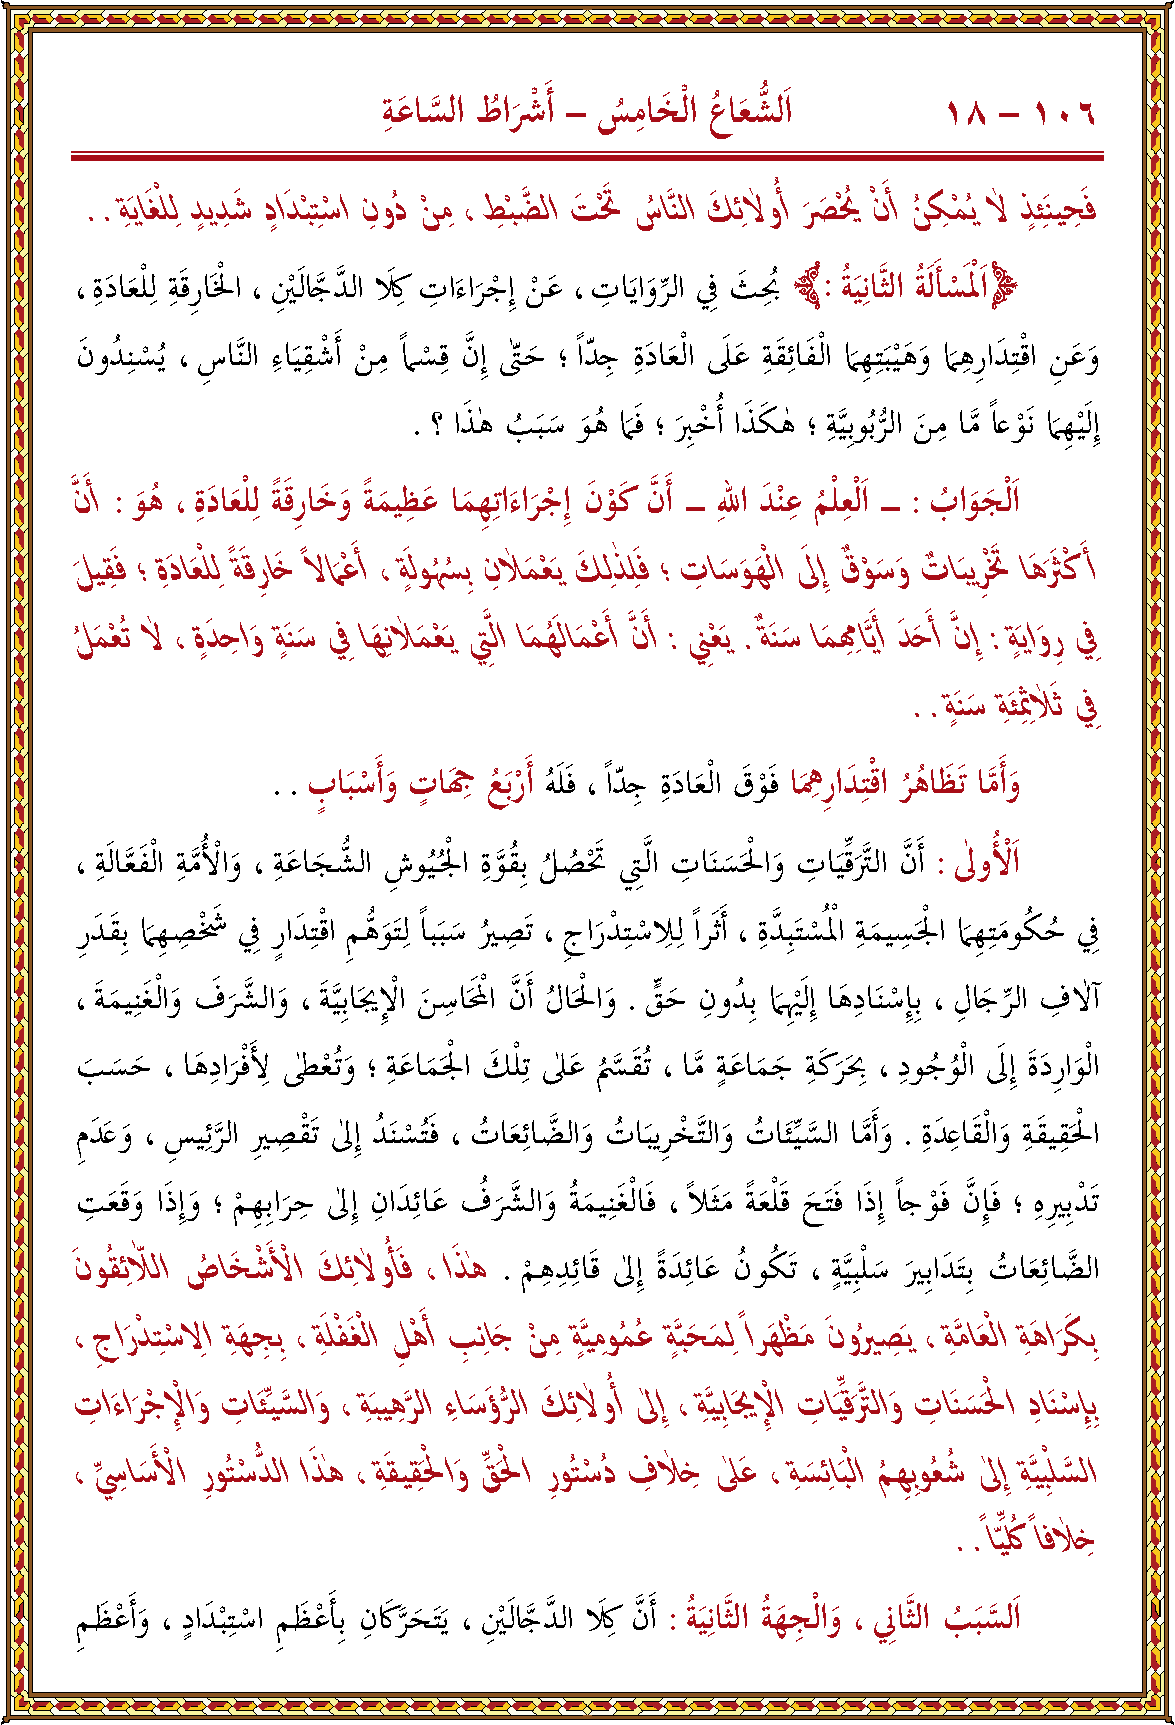 ١٠٦ – ١٨ اَلشُّعَاعُ الْخَامِسُ – أَشْرَاطُ السَّاعَةِ
فَحِينَئِذٍ لاٰ يُمْكِنُ أَنْ يُحْصَرَ أُولاٰئِكَ النَّاسُ تَحْتَ الضَّبْطِ ، مِنْ دُونِ اسْتِبْدَادٍ شَدِيدٍ لِلْغَايَةِ . .
﴿اَلْمَسْأَلَةُ الثَّانِيَةُ :﴾ بُحِثَ فِي الرِّوَايَاتِ ، عَنْ إِجْرَاءَاتِ كِلاَ الدَّجَّالَيْنِ ، الْخَارِقَةِ لِلْعَادَةِ ،
وَعَنِ اقْتِدَارِهِمَا وَهَيْبَتِهِمَا الْفَائِقَةِ عَلَى الْعَادَةِ جِدّاً ؛ حَتّٰى إِنَّ قِسْماً مِنْ أَشْقِيَاءِ النَّاسِ ، يُسْنِدُونَ
إِلَيْهِمَا نَوْعاً مَّا مِنَ الرُّبُوبِيَّةِ ؛ هٰكَذَا أُخْبِرَ ؛ فَمَا هُوَ سَبَبُ هٰذَا ؟ .
اَلْجَوَابُ : – اَلْعِلْمُ عِنْدَ اللهِ – أَنَّ كَوْنَ إِجْرَاءَاتِهِمَا عَظِيمَةً وَخَارِقَةً لِلْعَادَةِ ، هُوَ : أَنَّ
أَكْثَرَهَا تَخْرِيبَاتٌ وَسَوْقٌ إِلَى الْهَوَسَاتِ ؛ فَلِذٰلِكَ يَعْمَلاٰنِ بِسُهُولَةٍ ، أَعْمَالاً خَارِقَةً لِلْعَادَةِ ؛ فَقِيلَ
فِي رِوَايَةٍ : إِنَّ أَحَدَ أَيَّامِهِمَا سَنَةٌ . يَعْنِي : أَنَّ أَعْمَالَهُمَا الَّتِي يَعْمَلاٰنِهَا فِي سَنَةٍ وَاحِدَةٍ ، لاٰ تُعْمَلُ
فِي ثَلاٰثِمِئَةِ سَنَةٍ . .
وَأَمَّا تَظَاهُرُ اقْتِدَارِهِمَا فَوْقَ الْعَادَةِ جِدّاً ، فَلَهُ أَرْبَعُ جِهَاتٍ وَأَسْبَابٍ . .
اَلْأُولٰى : أَنَّ التَّرَقِّيَاتِ وَالْحَسَنَاتِ الَّتِي تَحْصُلُ بِقُوَّةِ الْجُيُوشِ الشُّجَاعَةِ ، وَالْأُمَّةِ الْفَعَّالَةِ ،
فِي حُكُومَتِهِمَا الْجَسِيمَةِ الْمُسْتَبِدَّةِ ، أَثَراً لِلِاسْتِدْرَاجِ ، تَصِيرُ سَبَباً لِتَوَهُّمِ اقْتِدَارٍ فِي شَخْصِهِمَا بِقَدَرِ
آلاٰفِ الرِّجَالِ ، بِإِسْنَادِهَا إِلَيْهِمَا بِدُونِ حَقٍّ . وَالْحَالُ أَنَّ الْمَحَاسِنَ الْإِيجَابِيَّةَ ، وَالشَّرَفَ وَالْغَنِيمَةَ ،
الْوَارِدَةَ إِلَى الْوُجُودِ ، بِحَرَكَةِ جَمَاعَةٍ مَّا ، تُقَسَّمُ عَلٰى تِلْكَ الْجَمَاعَةِ ؛ وَتُعْطٰى لِأَفْرَادِهَا ، حَسَبَ
الْحَقِيقَةِ وَالْقَاعِدَةِ . وَأَمَّا السَّيِّئَاتُ وَالتَّخْرِيبَاتُ وَالضَّائِعَاتُ ، فَتُسْنَدُ إِلٰى تَقْصِيرِ الرَّئِيسِ ، وَعَدَمِ
تَدْبِيرِهِ ؛ فَإِنَّ فَوْجاً إِذَا فَتَحَ قَلْعَةً مَثَلاً ، فَالْغَنِيمَةُ وَالشَّرَفُ عَائِدَانِ إِلٰى حِرَابِهِمْ ؛ وَإِذَا وَقَعَتِ
الضَّائِعَاتُ بِتَدَابِيرَ سَلْبِيَّةٍ ، تَكُونُ عَائِدَةً إِلٰى قَائِدِهِمْ . هٰذَا ، فَأُولاٰئِكَ الْأَشْخَاصُ اللاَّئِقُونَ
بِكَرَاهَةِ الْعَامَّةِ ، يَصِيرُونَ مَظْهَراً لِمَحَبَّةٍ عُمُومِيَّةٍ مِنْ جَانِبِ أَهْلِ الْغَفْلَةِ ، بِجِهَةِ الِاسْتِدْرَاجِ ،
بِإِسْنَادِ الْحَسَنَاتِ وَالتَّرَقِّيَاتِ الْإِيجَابِيَّةِ ، إِلٰى أُولاٰئِكَ الرُّؤَسَاءِ الرَّهِيبَةِ ، وَالسَّيِّئَاتِ وَالْإِجْرَاءَاتِ
السَّلْبِيَّةِ إِلٰى شُعُوبِهِمُ الْبَائِسَةِ ، عَلَى خِلاٰفِ دُسْتُورِ الْحَقِّ وَالْحَقِيقَةِ ، هٰذَا الدُّسْتُورِ الْأَسَاسِيِّ ،
خِلاٰفاً كُلِّيّاً . .
اَلسَّبَبُ الثَّانِي ، وَالْجِهَةُ الثَّانِيَةُ : أَنَّ كِلاَ الدَّجَّالَيْنِ ، يَتَحَرَّكَانِ بِأَعْظَمِ اسْتِبْدَادٍ ، وَأَعْظَمِ